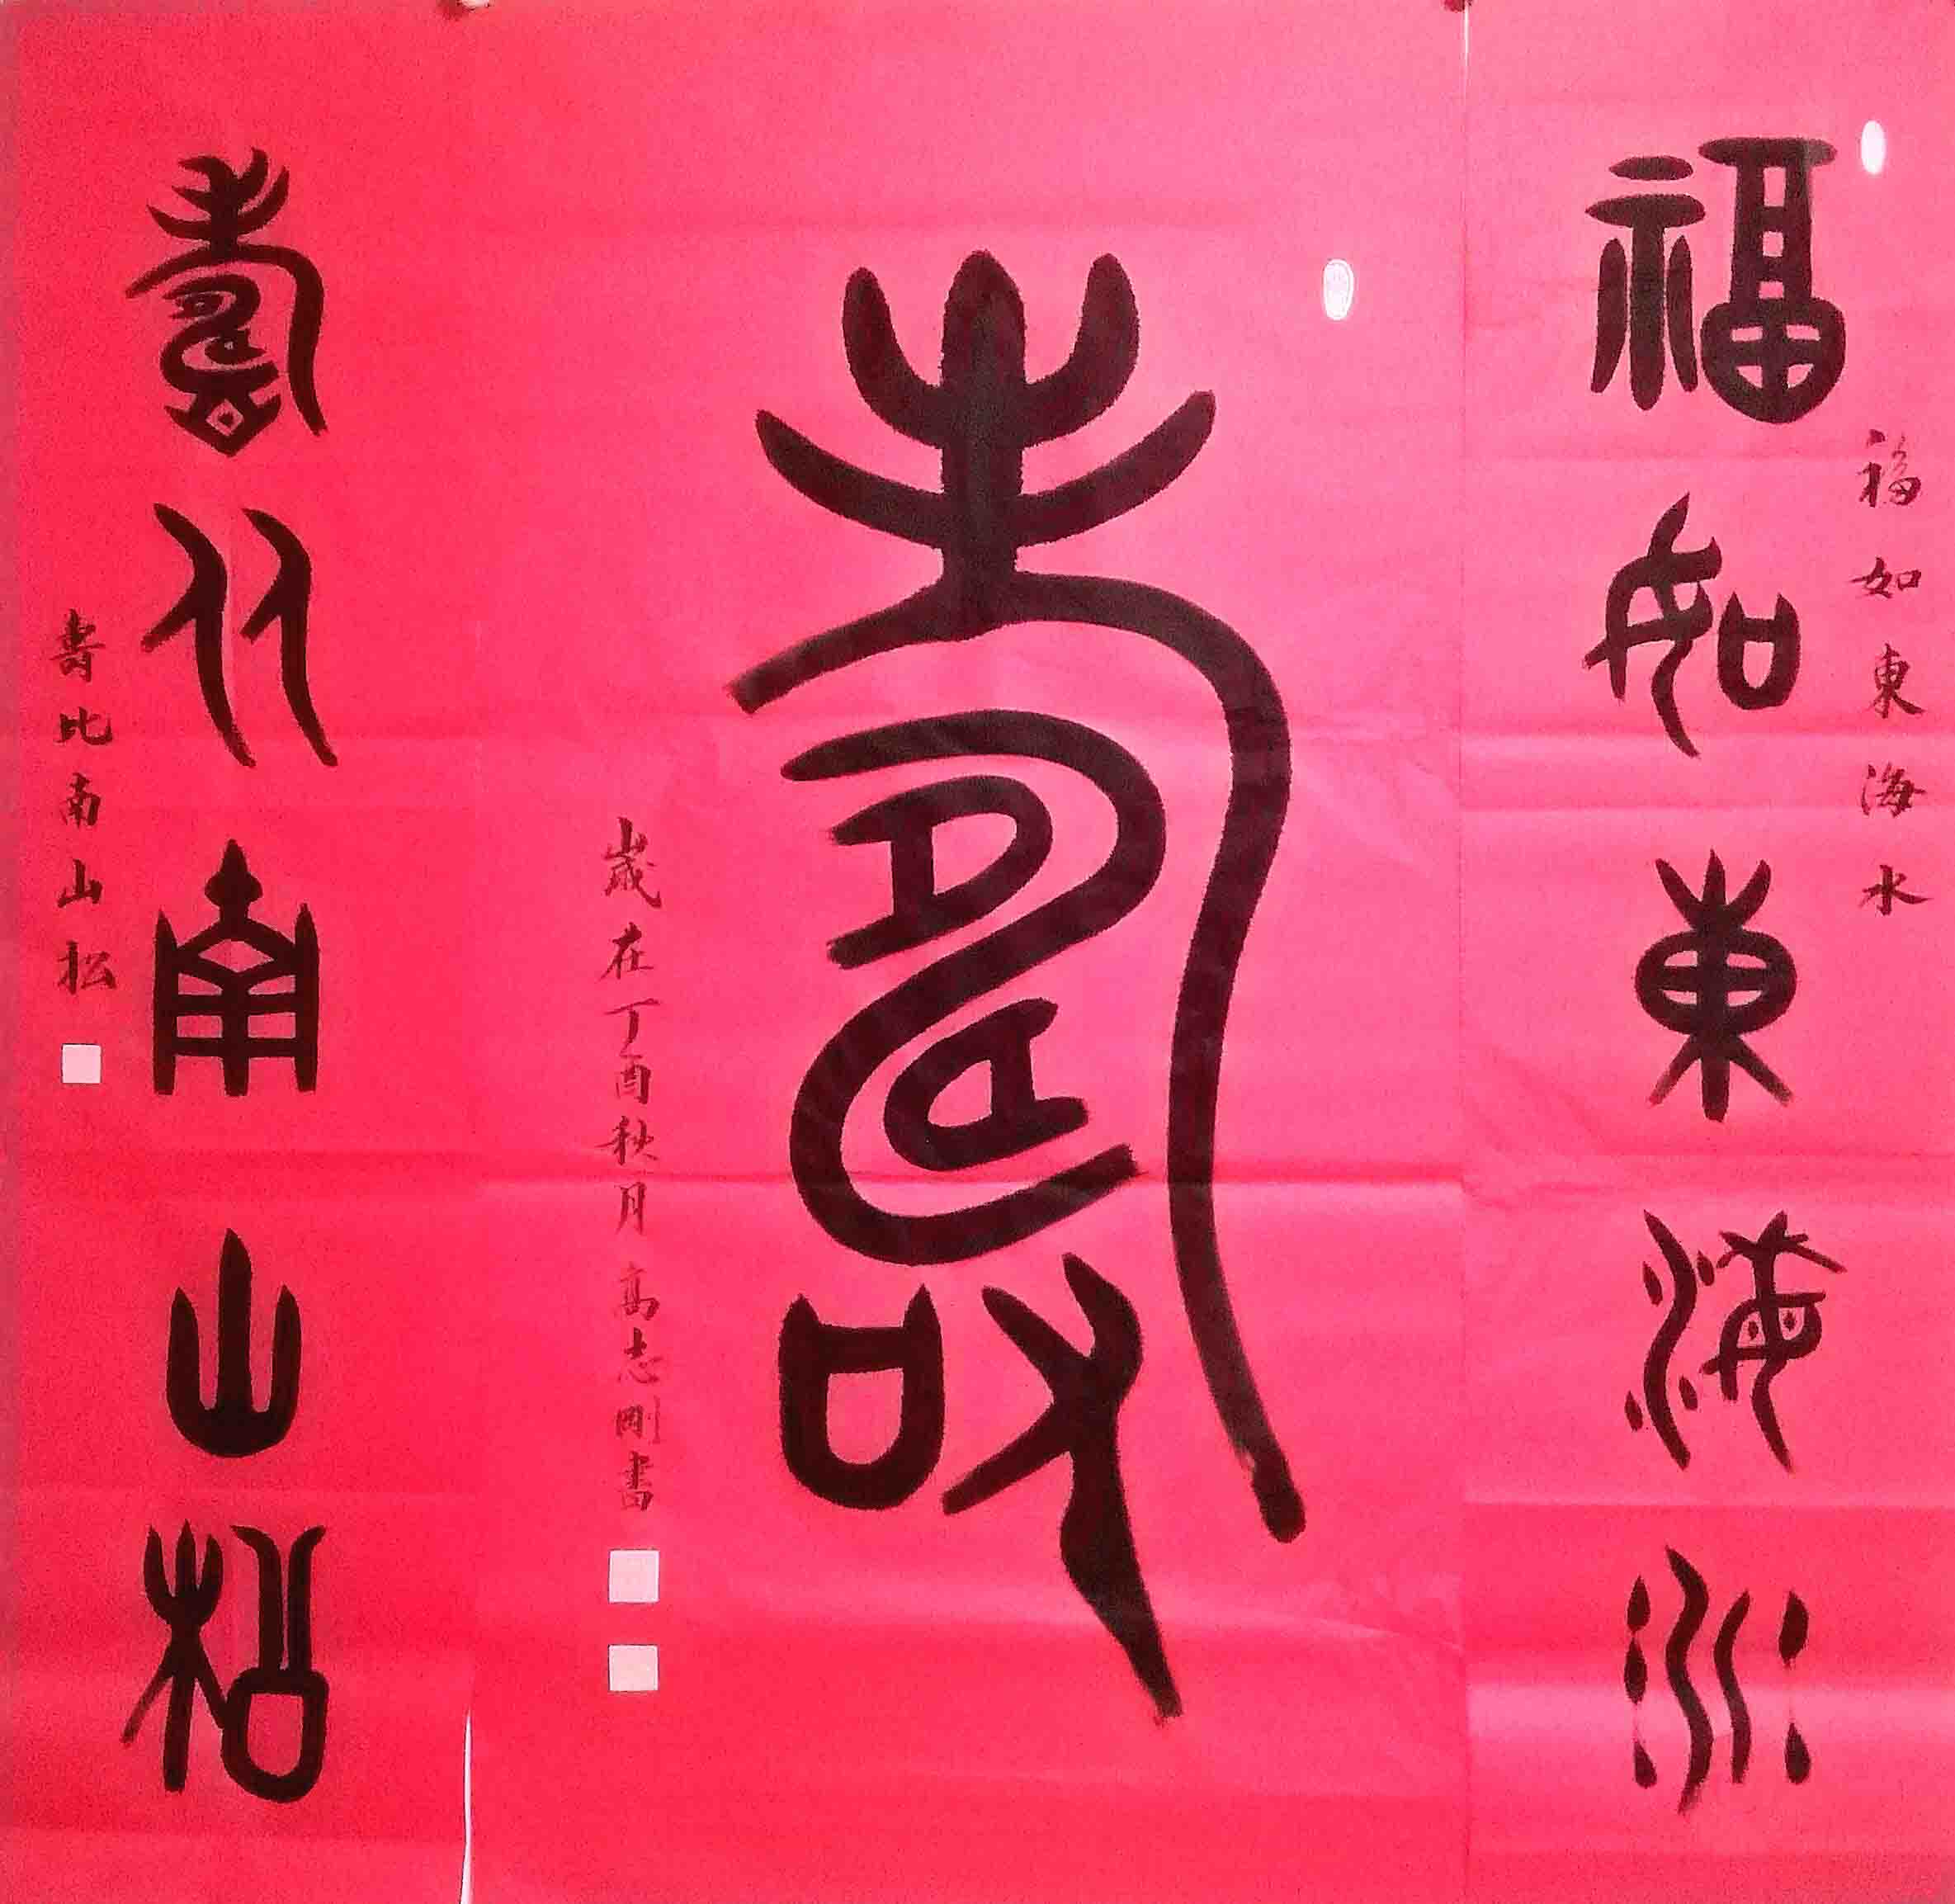 福如東海水
福如東海水
壽
歲在丁酉秋月高志剛書
壽比南山松
壽比南山松